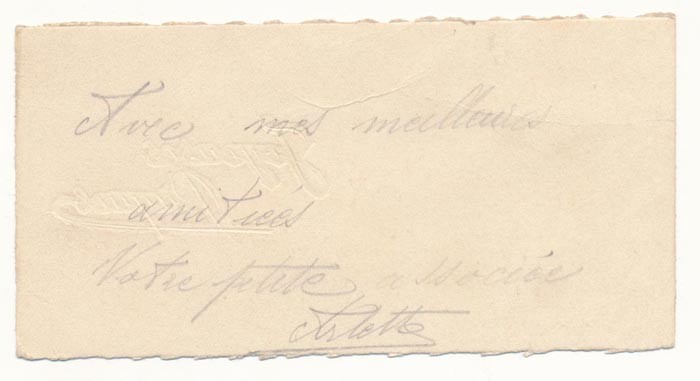 Avec mes meilleurs
amitiées
Votre ptite associée
Arlette